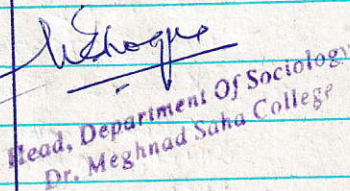 Head, Department Of Sociology
Dr. Meghnad Saha College